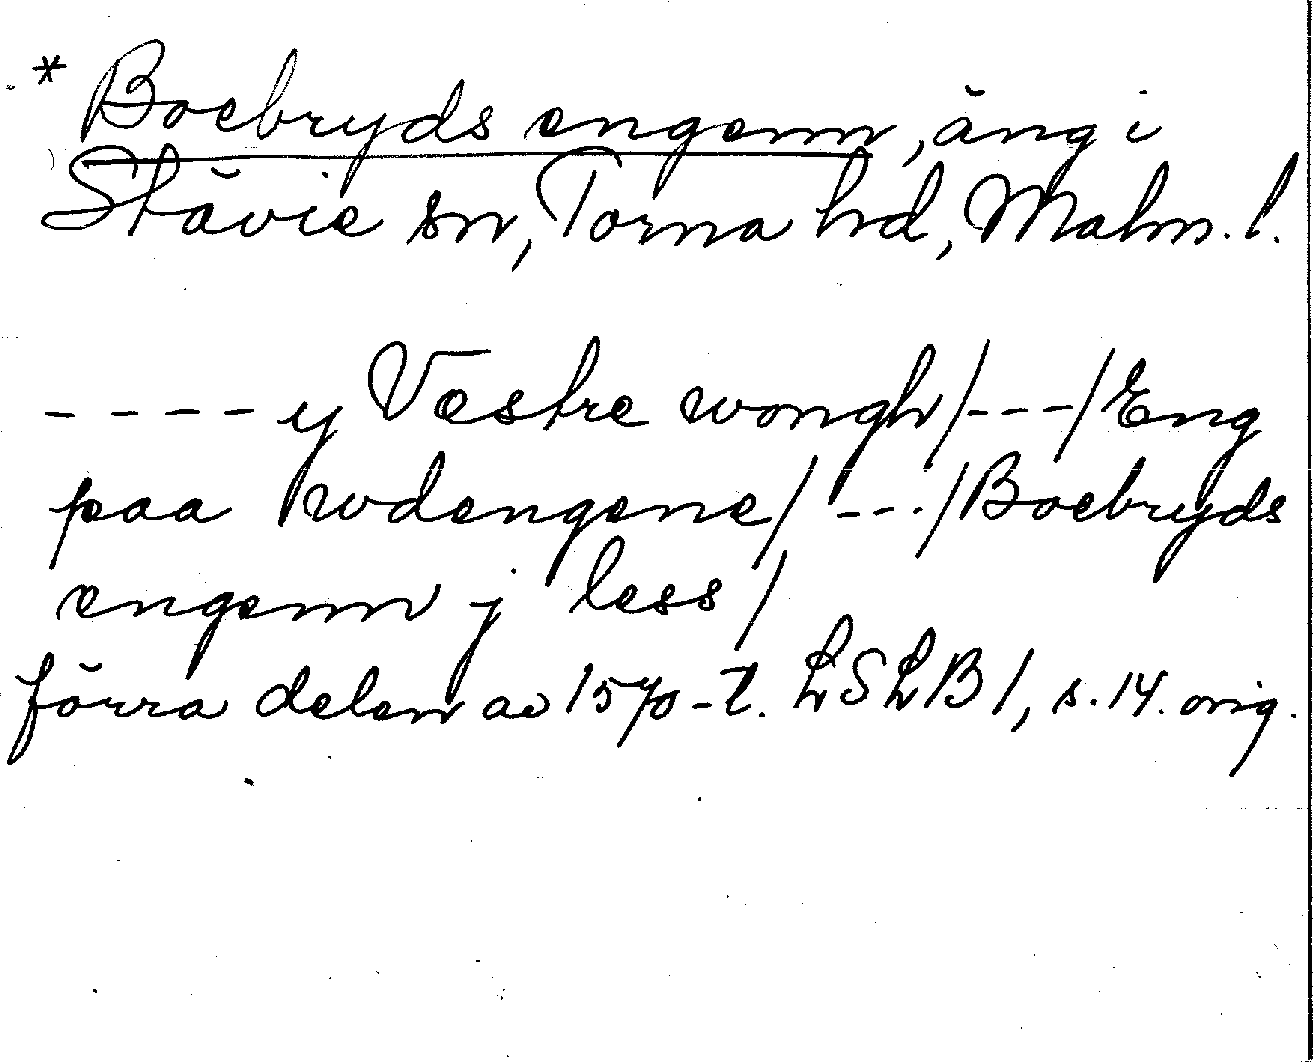 * Boebryds engenn, äng i
Stävie sn, Torna hd, Malm. l.
---- y Vestre wongh/---/Eng
paa Rwdengene/ ---/Boebryds
engenn j less/
förra delen av 1570-t. LSLB 1, s. 14. orig.